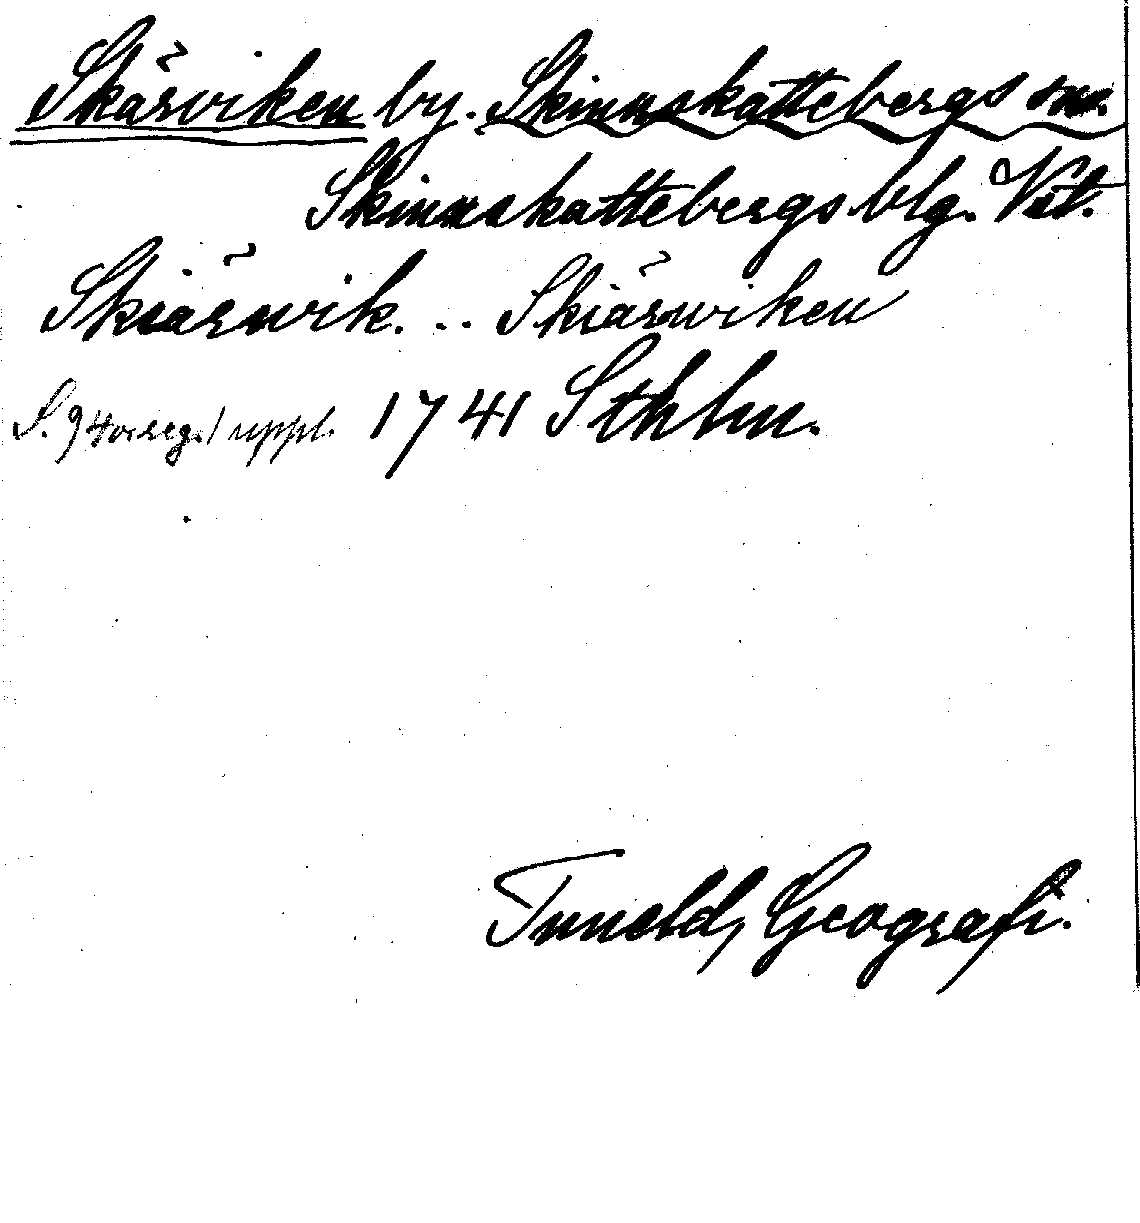 Skärviken by. Skinnskattebergs sn.
Skinnskattebergs blg. Vst.
Skiärwik. .. Skiärwiken
S. 94 or.reg./ uppl. 1741 Sthlm.
Tuneld, Geografi.